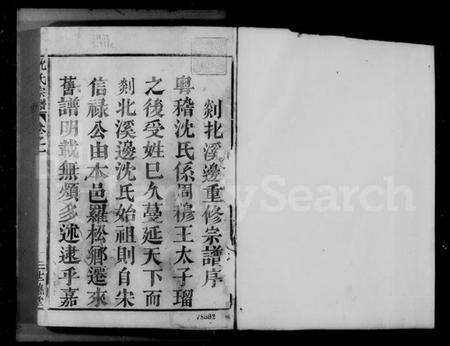 剡北溪邊重修宗譜序
粵稽沈氏係周穆王太子瑠
之後受姓已久蔓延天下而
剡北溪邊沈氏始祖則自宋
信祿公由本邑羅松鄉遷來
舊譜明載無煩多述逮乎嘉
沈氏宗譜
卷之一
Search